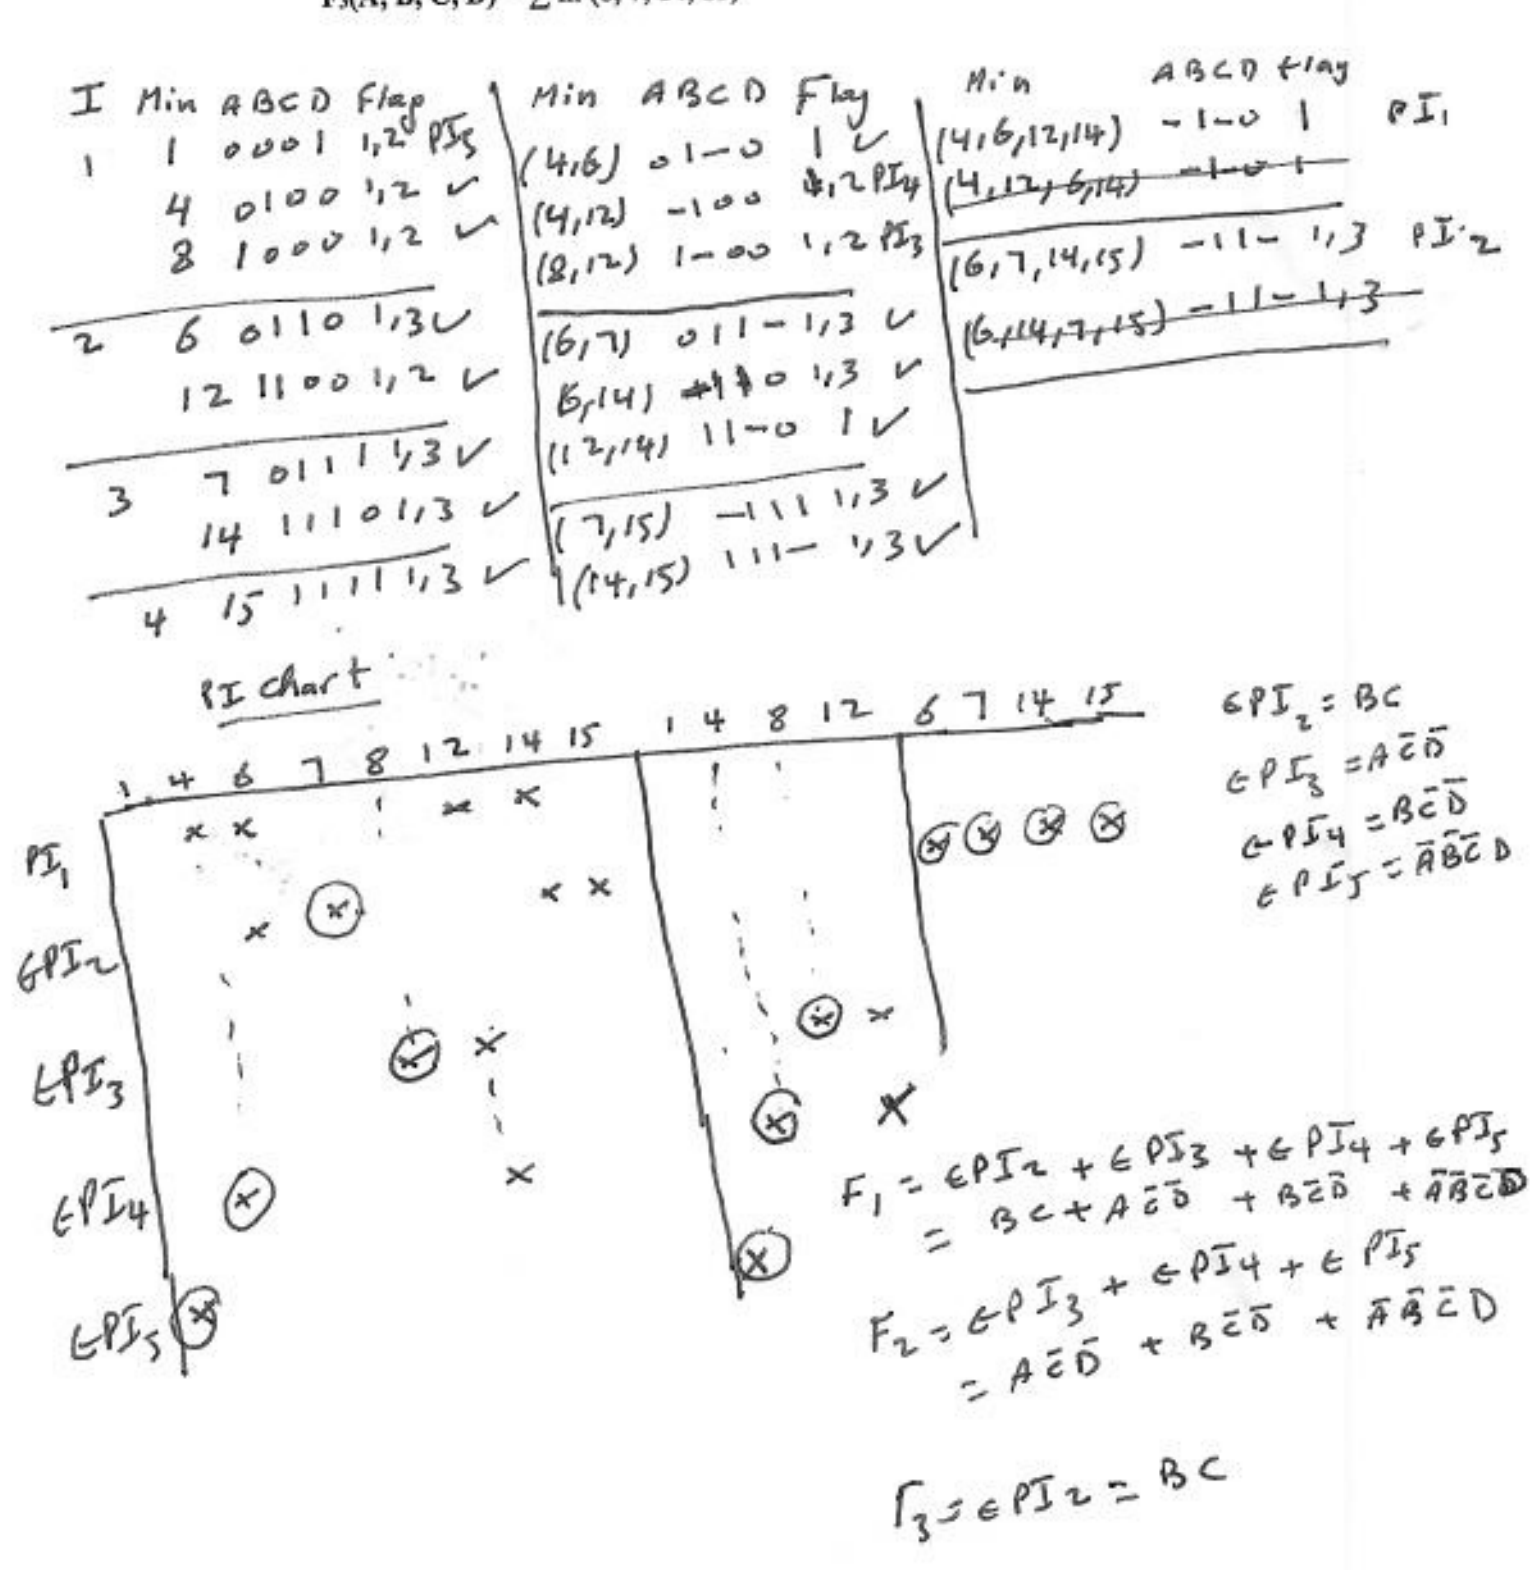 I Min ABCD Flag
1 1 0001 1,2 PI5
4 0100 1,2 ✓
8 1000 1,2 ✓
2 6 0110 1,3 ✓
12 1100 1,2 ✓
3 7 0111 1,3 ✓
14 1110 1,3 ✓
4 15 1111 1,3 ✓
Min ABCD Flag
(4,6) 01-0 1 ✓
(4,12) -100 1,2 PI4
(8,12) 1-00 1,2 PI3
(6,7) 011- 1,3 ✓
(6,14) -110 1,3 ✓
(12,14) 11-0 1 ✓
(7,15) -111 1,3 ✓
(14,15) 111- 1,3 ✓
Min ABCD flag
(4,6,12,14) -1-0 1 PI1
(4,12,6,14) -1-0 1
(6,7,14,15) -11- 1,3 PI2
(6,14,7,15) -11- 1,3
PI chart
1 4 6 7 8 12 14 15 1 4 8 12 6 7 14 15
PI1 x x x x x x x x
EPI2 x x x x
EPI3 x x x x
EPI4 x x x x
EPI5 x x
EPI2 = BC
EPI3 = AC̄D̄
EPI4 = BC̄D̄
EPI5 = ĀB̄C̄D
F1 = EPI2 + EPI3 + EPI4 + EPI5
= BC + AC̄D̄ + BC̄D̄ + ĀB̄C̄D
F2 = EPI3 + EPI4 + EPI5
= AC̄D̄ + BC̄D̄ + ĀB̄C̄D
F3 = EPI2 = BC